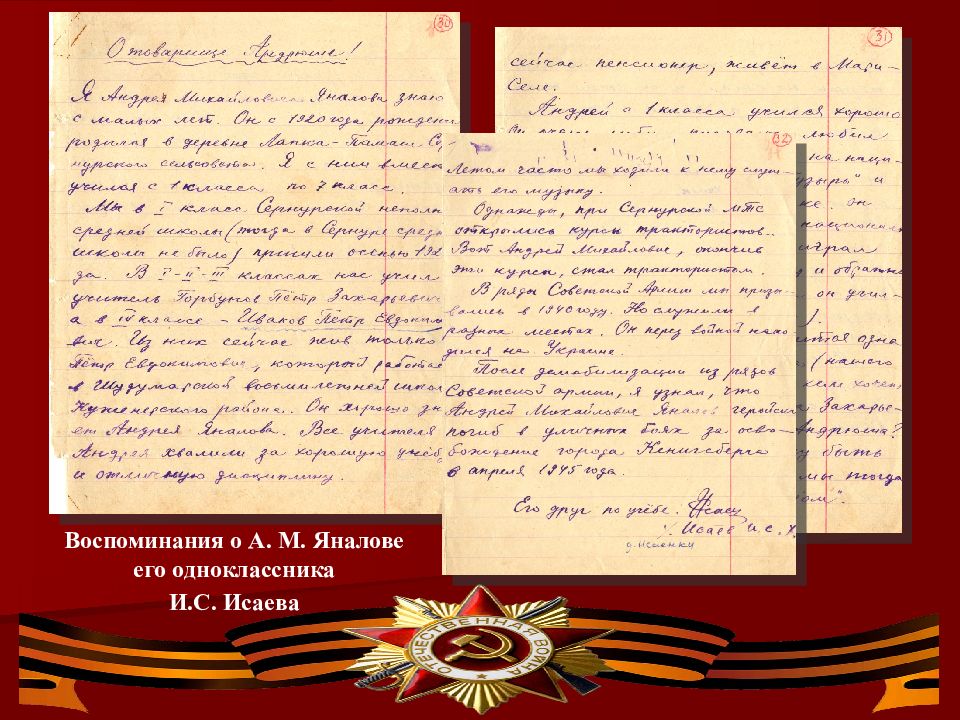 30
О товарище Андрюше!
Я Андрея Михайловича Яналова знаю
с малых лет. Он с 1920 года рождения
родился в деревне Лапка-Памаш Сер-
нурского сельсовета. Я с ним вместе
учился с 1 класса по 7 класс.
Мы в I класс Сернурской неполн
средней школы (тогда в Сернуре средн
школы не было) пришли осенью 192
да. В I-II-III классах нас учил
учитель Горбунов Пётр Захарьевич
а в IV классе - Иваков Пётр Евдоким
вич. Из них сейчас жив только
Пётр Евдокимович, который работае
в Шудумарской восьмилетней школ
Куженерского района. Он хорошо зн
ет Андрея Яналова. Все учителя
Андрея хвалили за хорошую учёб
и отличную дисциплину.
31
сейчас пенсионер, живёт в Мари-
Селе.
Андрей с 1 класса учился хорошо
любил
на наци-
зырь" и
ке. он
национальн
играл
и обратно
он учил-
).
одна
(нашего
кем хочет
Захарье-
Андрюша?
у быть
мы тогда
ом".
32
Летом часто мы ходили к нему слуш-
ать его музыку.
Однажды, при Сернурской МТС
открылись курсы трактористов.
Вот Андрей Михайлович, окончив
эти курсы, стал трактористом.
В ряды Советской Армии мы призы-
вались в 1940 году. Но служили в
разных местах. Он перед войной нахо-
дился на Украине.
После демобилизации из рядов
Советской армии, я узнал, что
Андрей Михайлович Яналов геройски
погиб в уличных боях за осво-
бождение города Кенигсберга
в апреля 1945 года.
Его друг по учёбе. Исаев
Исаев И. С.
Воспоминания о А. М. Яналове
его одноклассника
И.С. Исаева
ОТЕЧЕСТВЕННАЯ ВОЙНА